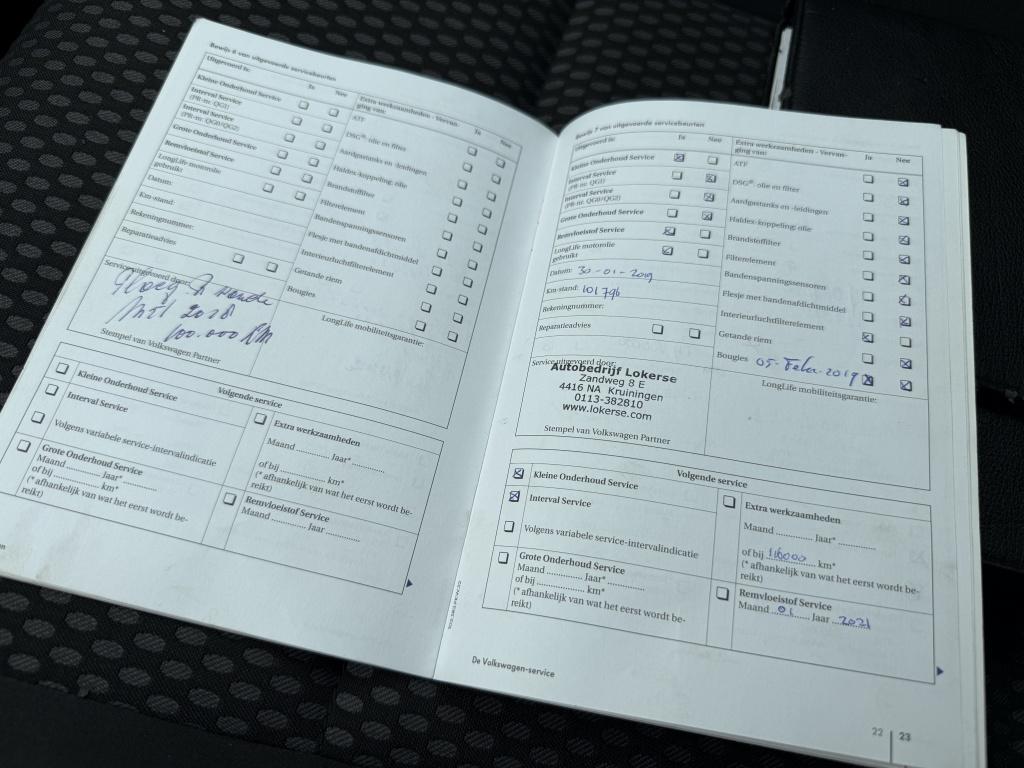 Bewijs 6 van uitgevoerde servicebeurten
Uitgevoerd is:
Ja Nee
Kleine Onderhoud Service
Interval Service
(PR-nr. QG1)
Interval Service
(PR-nr. QG0/QG2)
Grote Onderhoud Service
Remvloeistof Service
LongLife motorolie
gebruikt
Datum:
Km-stand:
Rekeningnummer:
Reparatieadvies
Service uitgevoerd door:
2018
100.000 km
Stempel van Volkswagen Partner
Extra werkzaamheden - Vervan-
ging van:
Ja Nee
ATF
DSG®: olie en filter
Aardgastanks en -leidingen
Haldex-koppeling: olie
Brandstoffilter
Filterelement
Bandenspanningssensoren
Flesje met bandenafdichtmiddel
Interieurluchtfilterelement
Getande riem
Bougies
LongLife mobiliteitsgarantie:
Volgende service
Kleine Onderhoud Service
Interval Service
Volgens variabele service-intervalindicatie
Grote Onderhoud Service
Maand ............. Jaar* .............
of bij ............. km*
(* afhankelijk van wat het eerst wordt be-
reikt)
Extra werkzaamheden
Maand ............. Jaar* .............
of bij ............. km*
(* afhankelijk van wat het eerst wordt be-
reikt)
Remvloeistof Service
Maand ............. Jaar .............
Bewijs 7 van uitgevoerde servicebeurten
Uitgevoerd is:
Ja Nee
Kleine Onderhoud Service
Interval Service
(PR-nr. QG1)
Interval Service
(PR-nr. QG0/QG2)
Grote Onderhoud Service
Remvloeistof Service
LongLife motorolie
gebruikt
Datum: 30-01-2019
Km-stand: 101796
Rekeningnummer:
Reparatieadvies
Service uitgevoerd door:
Autobedrijf Lokerse
Zandweg 8 E
4416 NA Kruiningen
0113-382810
www.lokerse.com
Stempel van Volkswagen Partner
Extra werkzaamheden - Vervan-
ging van:
Ja Nee
ATF
DSG®: olie en filter
Aardgastanks en -leidingen
Haldex-koppeling: olie
Brandstoffilter
Filterelement
Bandenspanningssensoren
Flesje met bandenafdichtmiddel
Interieurluchtfilterelement
Getande riem
Bougies 05-Febr-2019
LongLife mobiliteitsgarantie:
Volgende service
Kleine Onderhoud Service
Interval Service
Volgens variabele service-intervalindicatie
Grote Onderhoud Service
Maand ............. Jaar* .............
of bij ............. km*
(* afhankelijk van wat het eerst wordt be-
reikt)
Extra werkzaamheden
Maand ............. Jaar* .............
of bij 116000 km*
(* afhankelijk van wat het eerst wordt be-
reikt)
Remvloeistof Service
Maand 01 Jaar 2021
De Volkswagen-service
22 23